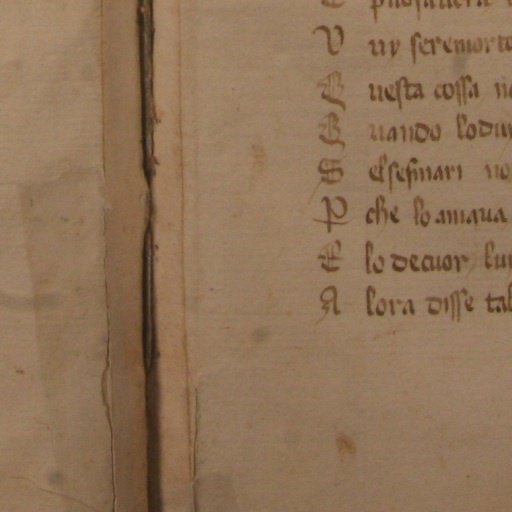 V uy seremorto
Q uesta cossa no
Q uando lodu
S elsesmari no
P che lo amaua
E lo decuor lu
A lora disse tal